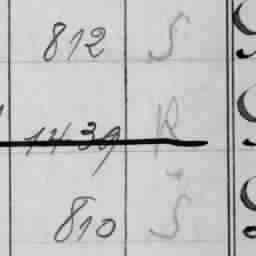 812 S
1439 R
810 S